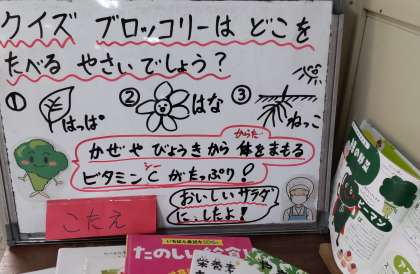 クイズ ブロッコリーは どこを
たべる やさいでしょう？
① はっぱ ② はな ③ ねっこ
からだ
かぜや びょうきから 体をまもる
ビタミンC が たっぷり！
シー
おいしいサラダ
にしたよ！
こたえ
ピーマン
いちばん身近な
たのしい
栄養